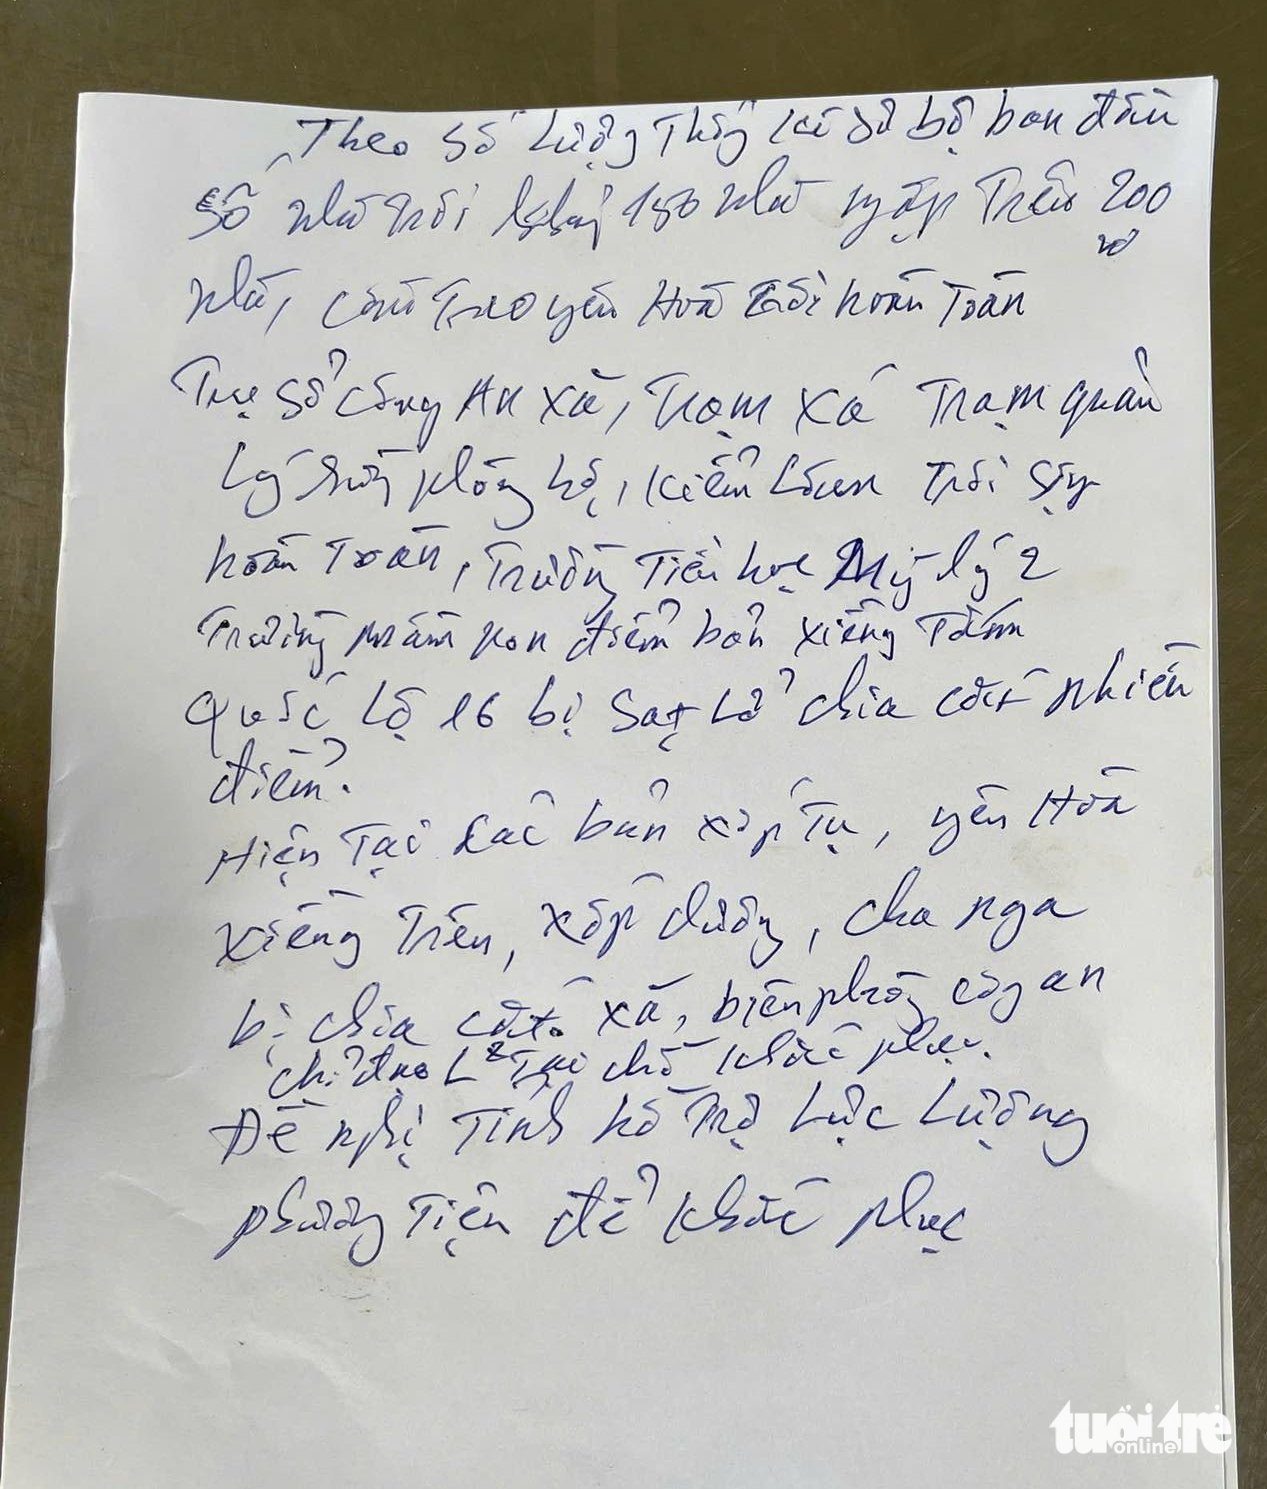 Theo số lượng thống kê sơ bộ ban đầu
số nhà trôi khoảng 150 nhà ngập trên 200
nhà, cầu treo yên Hoà trôi hoàn toàn
Trụ sở công An xã, Trạm xá Trạm quản
Lý rừng phòng hộ, kiểm Lâm trôi sập
hoàn toàn, Trường Tiểu học Mỹ lý 2
Trường mầm non điểm bản xiềng Tắm
Quốc Lộ 16 bị sạt Lở chia cắt nhiều
điểm.
Hiện Tại các bản xốp Tụ, yên Hoà
xiềng Trên, xốp dương, cha nga
bị chia cắt. xã, biên phòng công an
chỉ đạo L² Tại chỗ khắc phục.
Đề nghị Tỉnh hỗ Trợ Lực Lượng
phương Tiện để khắc phục
tuổi trẻ
online